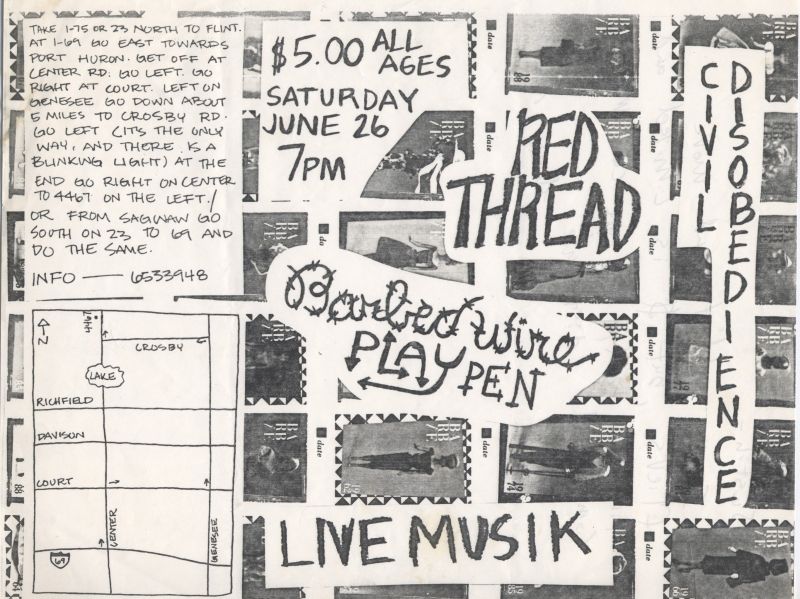 TAKE 1-75 OR 23 NORTH TO FLINT.
AT 1-69 GO EAST TOWARDS
PORT HURON. GET OFF AT
CENTER RD. GO LEFT. GO
RIGHT AT COURT. LEFT ON
GENESEE GO DOWN ABOUT
5 MILES TO CROSBY RD.
GO LEFT (ITS THE ONLY
WAY, AND THERE IS A
BLINKING LIGHT) AT THE
END GO RIGHT ON CENTER
TO 4467 ON THE LEFT./
OR FROM SAGINAW GO
SOUTH ON 23 TO 69 AND
DO THE SAME.
INFO — 6533948
$5.00 ALL
AGES
SATURDAY
JUNE 26
7PM
RED
THREAD
CIVIL
DISOBEDIENCE
Barbed wire
PLAY PEN
LIVE MUSIK
N
4467
CROSBY
LAKE
RICHFIELD
DAVISON
COURT
CENTER
GENESEE
69
date
date
date
date
date
date
date
date
date
date